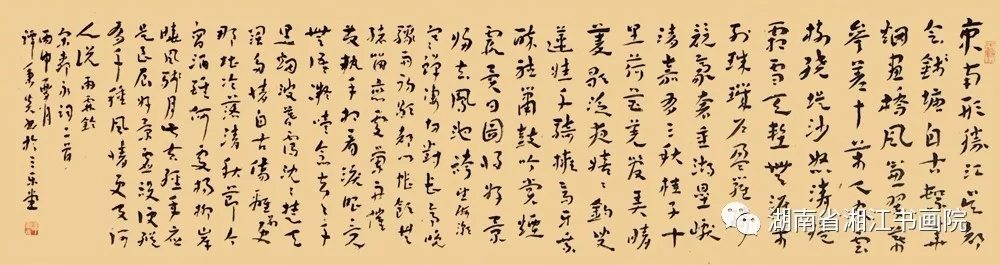 東南形勝江吴都
会錢塘自古繁華
烟画橋風簾翠幕
參差十萬人家雲
樹繞堤沙怒濤卷
霜雪天塹無涯市
列珠璣户盈羅綺
競豪奢重湖叠巘
清嘉有三秋桂子十
里荷花羌管弄晴
菱歌泛夜嬉嬉釣叟
蓮娃千騎擁高牙乘
醉聽簫鼓吟賞煙
霞異日圖將好景
歸去鳳池誇 望海潮
寒蟬凄切對長亭晚
驟雨初歇都門帳飲無
緒留戀處蘭舟催
發執手相看淚眼竟
無語凝噎念去去千
里烟波暮靄沈沈楚天
闊多情自古傷離别更
那堪冷落清秋節今
宵酒醒何處楊柳岸
曉風殘月此去經年應
是良辰好景虚設便縱
有千種風情更與何
人説 雨霖鈴
宋柳永詞二首
丙申夏月
譚秉炎书於三乐堂
湖南省湘江书画院